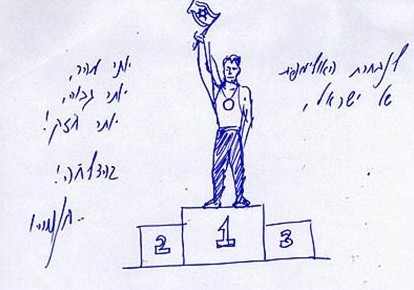 לנבחרת האולימפית
של ישראל,
יותר מהר,
יותר גבוה,
יותר חזק!
בהצלחה!
2 1 3